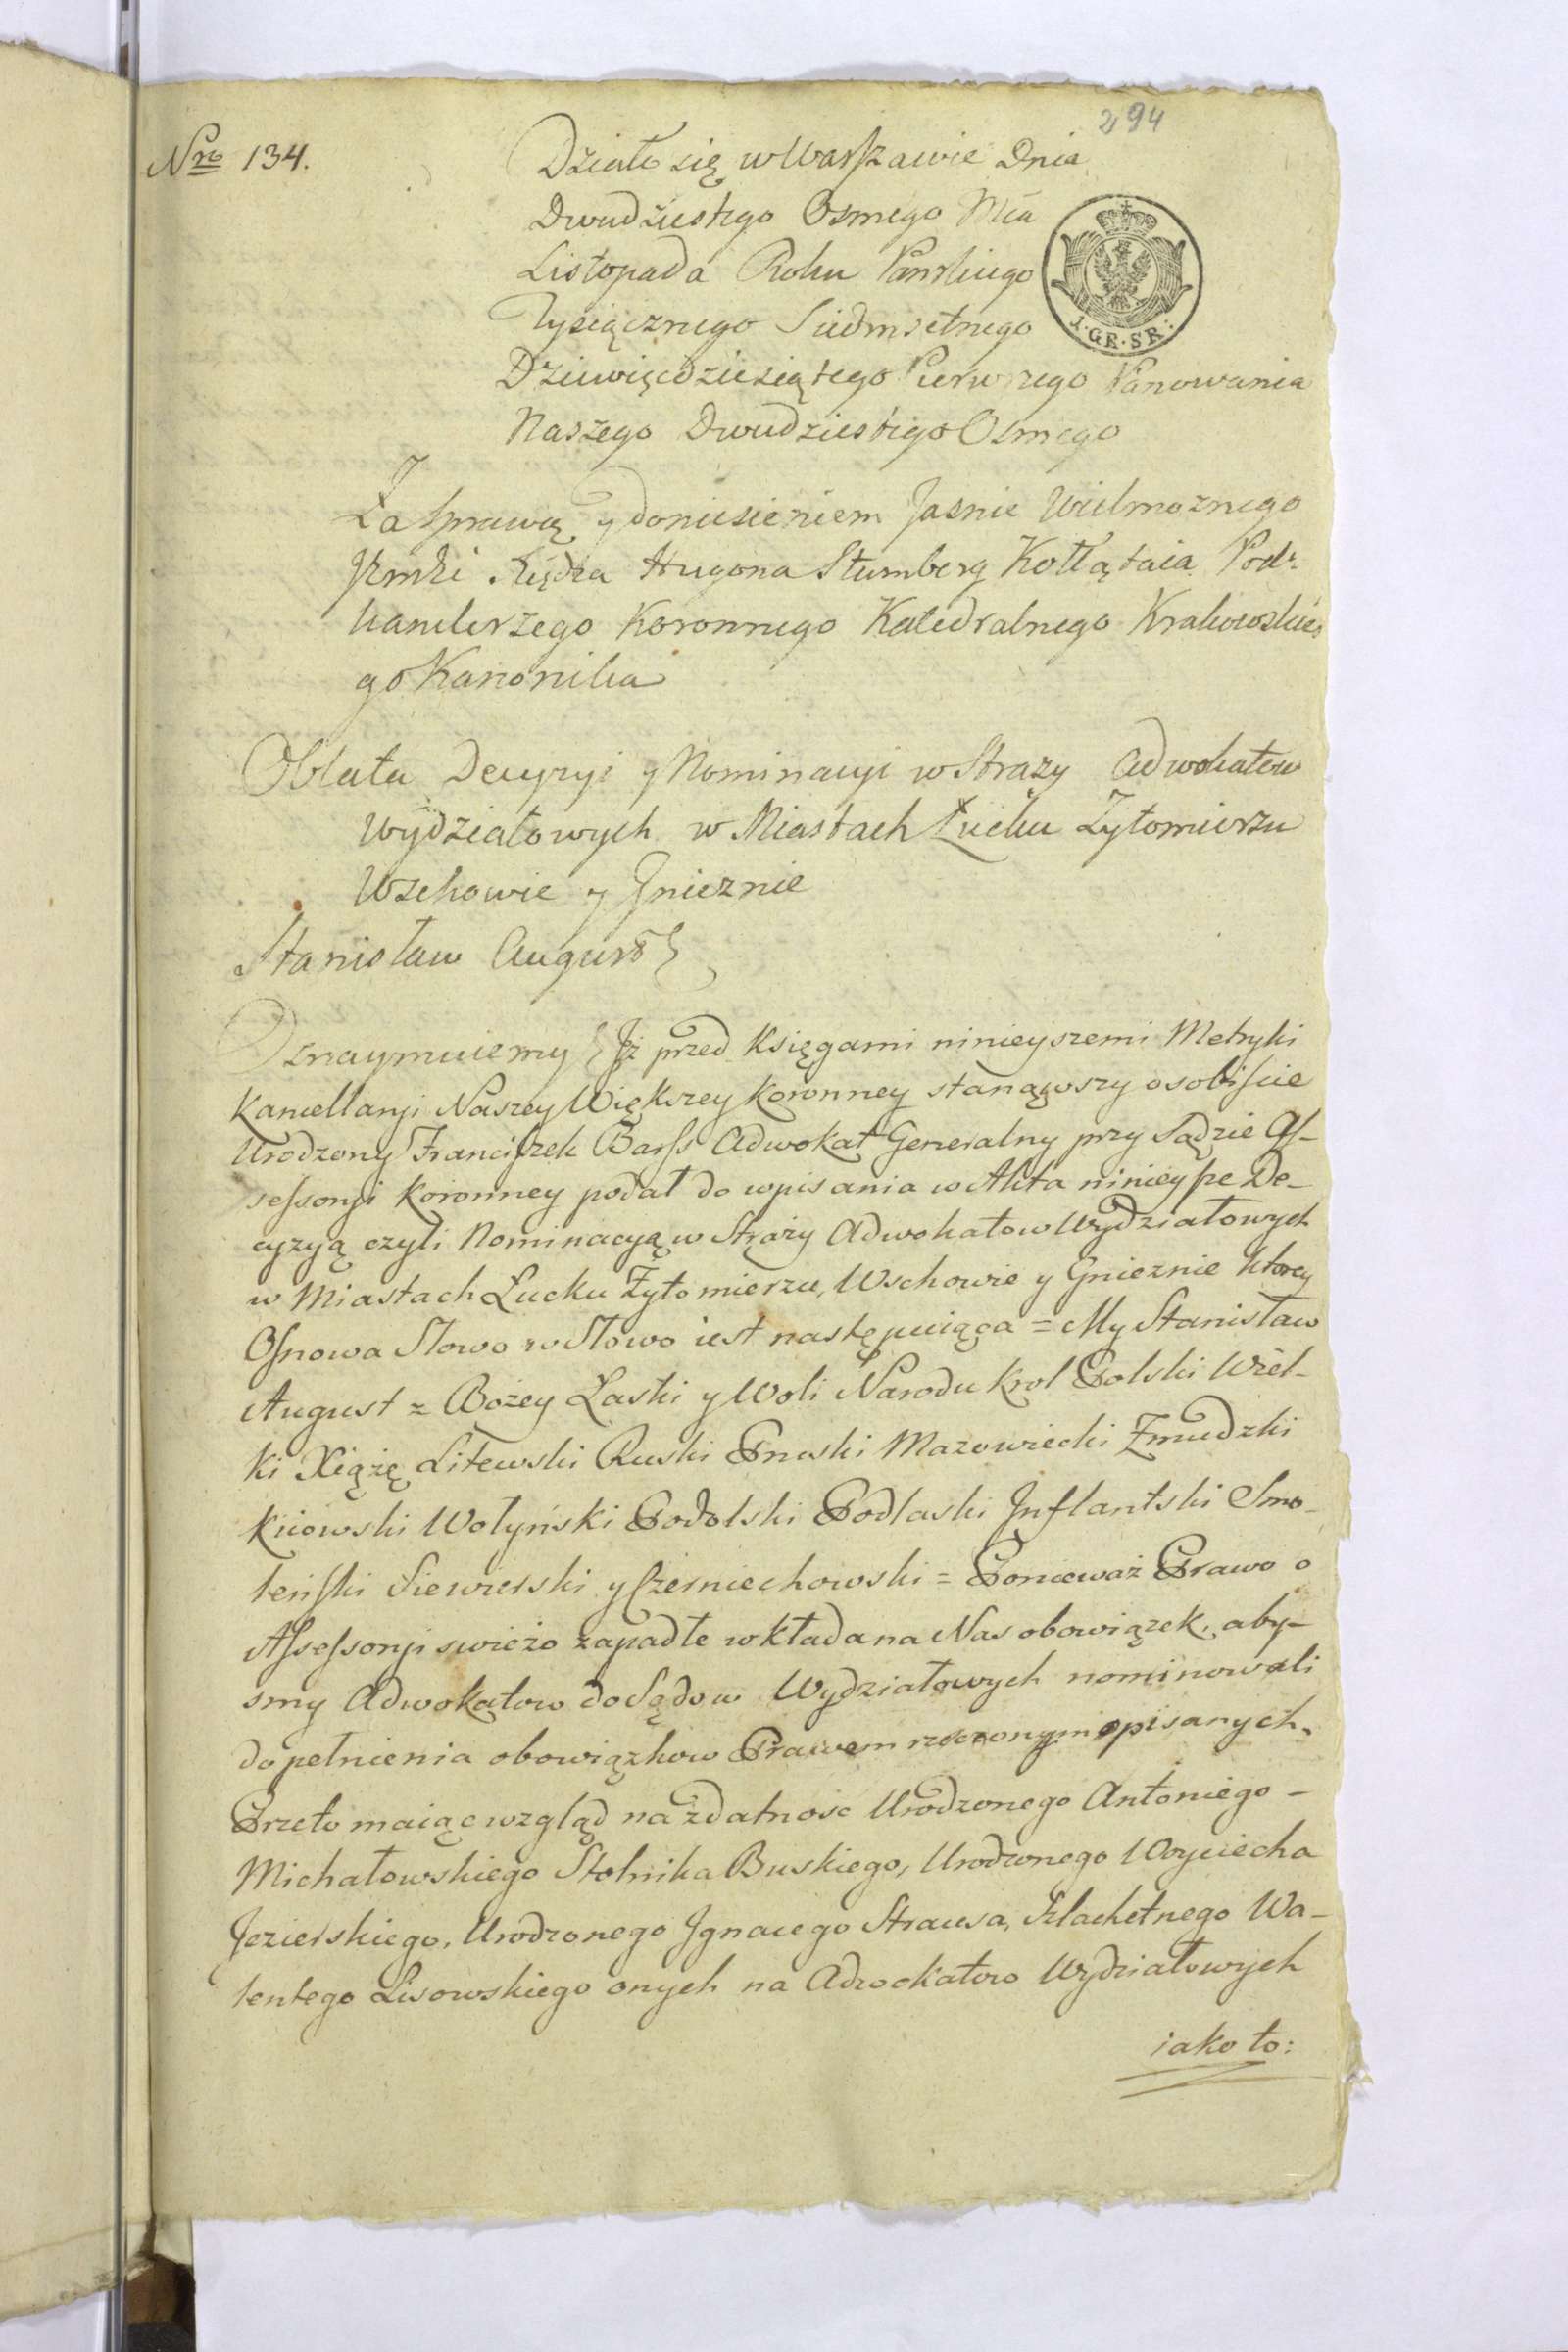 294
Nro 134.
Działo się w Warszawie Dnia
Dwudziestego Osmego Mca
Listopada Roku Panskiego
Tysiącznego Siedmsetnego
Dziewięcdziesiątego Pierwszego Panowania
Naszego Dwudziestego Osmego
1. GR. SR:
Za Sprawą y doniesieniem Jasnie Wielmoznego
Jmci Xiędza Hugona Sztumberg Kołłątaia Pod-
kanclerzego Koronnego Katedralnego Krakowskie-
go Kanonika
Oblata Decyzyi y Nominacyi w Strazy Adwokatow
Wydziałowych w Miastach Łucku Zytomierzu
Wschowie y Gnieznie
Stanisław August
Oznaymuiemy Jż przed Księgami ninieyszemi Metryki
Kancellaryi Naszey Większey Koronney stanąwszy osobiscie
Urodzony Franciszek Barss Adwokat Generalny przy Sądzie As-
sessoryi Koronney podał do wpisania w Akta ninieysze De-
cyzyą czyli Nominacyą w Straży Adwokatow Wydziałowych
w Miastach Łucku Żytomierzu, Wschowie y Gnieznie ktorey
Osnowa Słowo w Słowo iest następuiąca = My Stanisław
August z Bożey Łaski y Woli Narodu Krol Polski Wiel-
ki Xiążę Litewski Ruski Pruski Mazowiecki Żmudzki
Kiiowski Wołyński Podolski Podlaski Jnflantski Smo-
leński Siewierski y Czerniechowski = Ponieważ Prawo o
Assessoryi swieżo zapadłe wkłada na Nas obowiązek, aby-
smy Adwokatow do Sądow Wydziałowych nominowali
do pełnienia obowiązkow Prawem rzeczonym opisanych,
Przeto maiąc wzgląd na zdatnosc Urodzonego Antoniego -
Michałowskiego Stolnika Buskiego, Urodzonego Woyciecha
Jezierskiego, Urodzonego Jgnacego Strausa, Szlachetnego Wa-
lentego Lisowskiego onych na Adwokatow Wydziałowych
iako to: